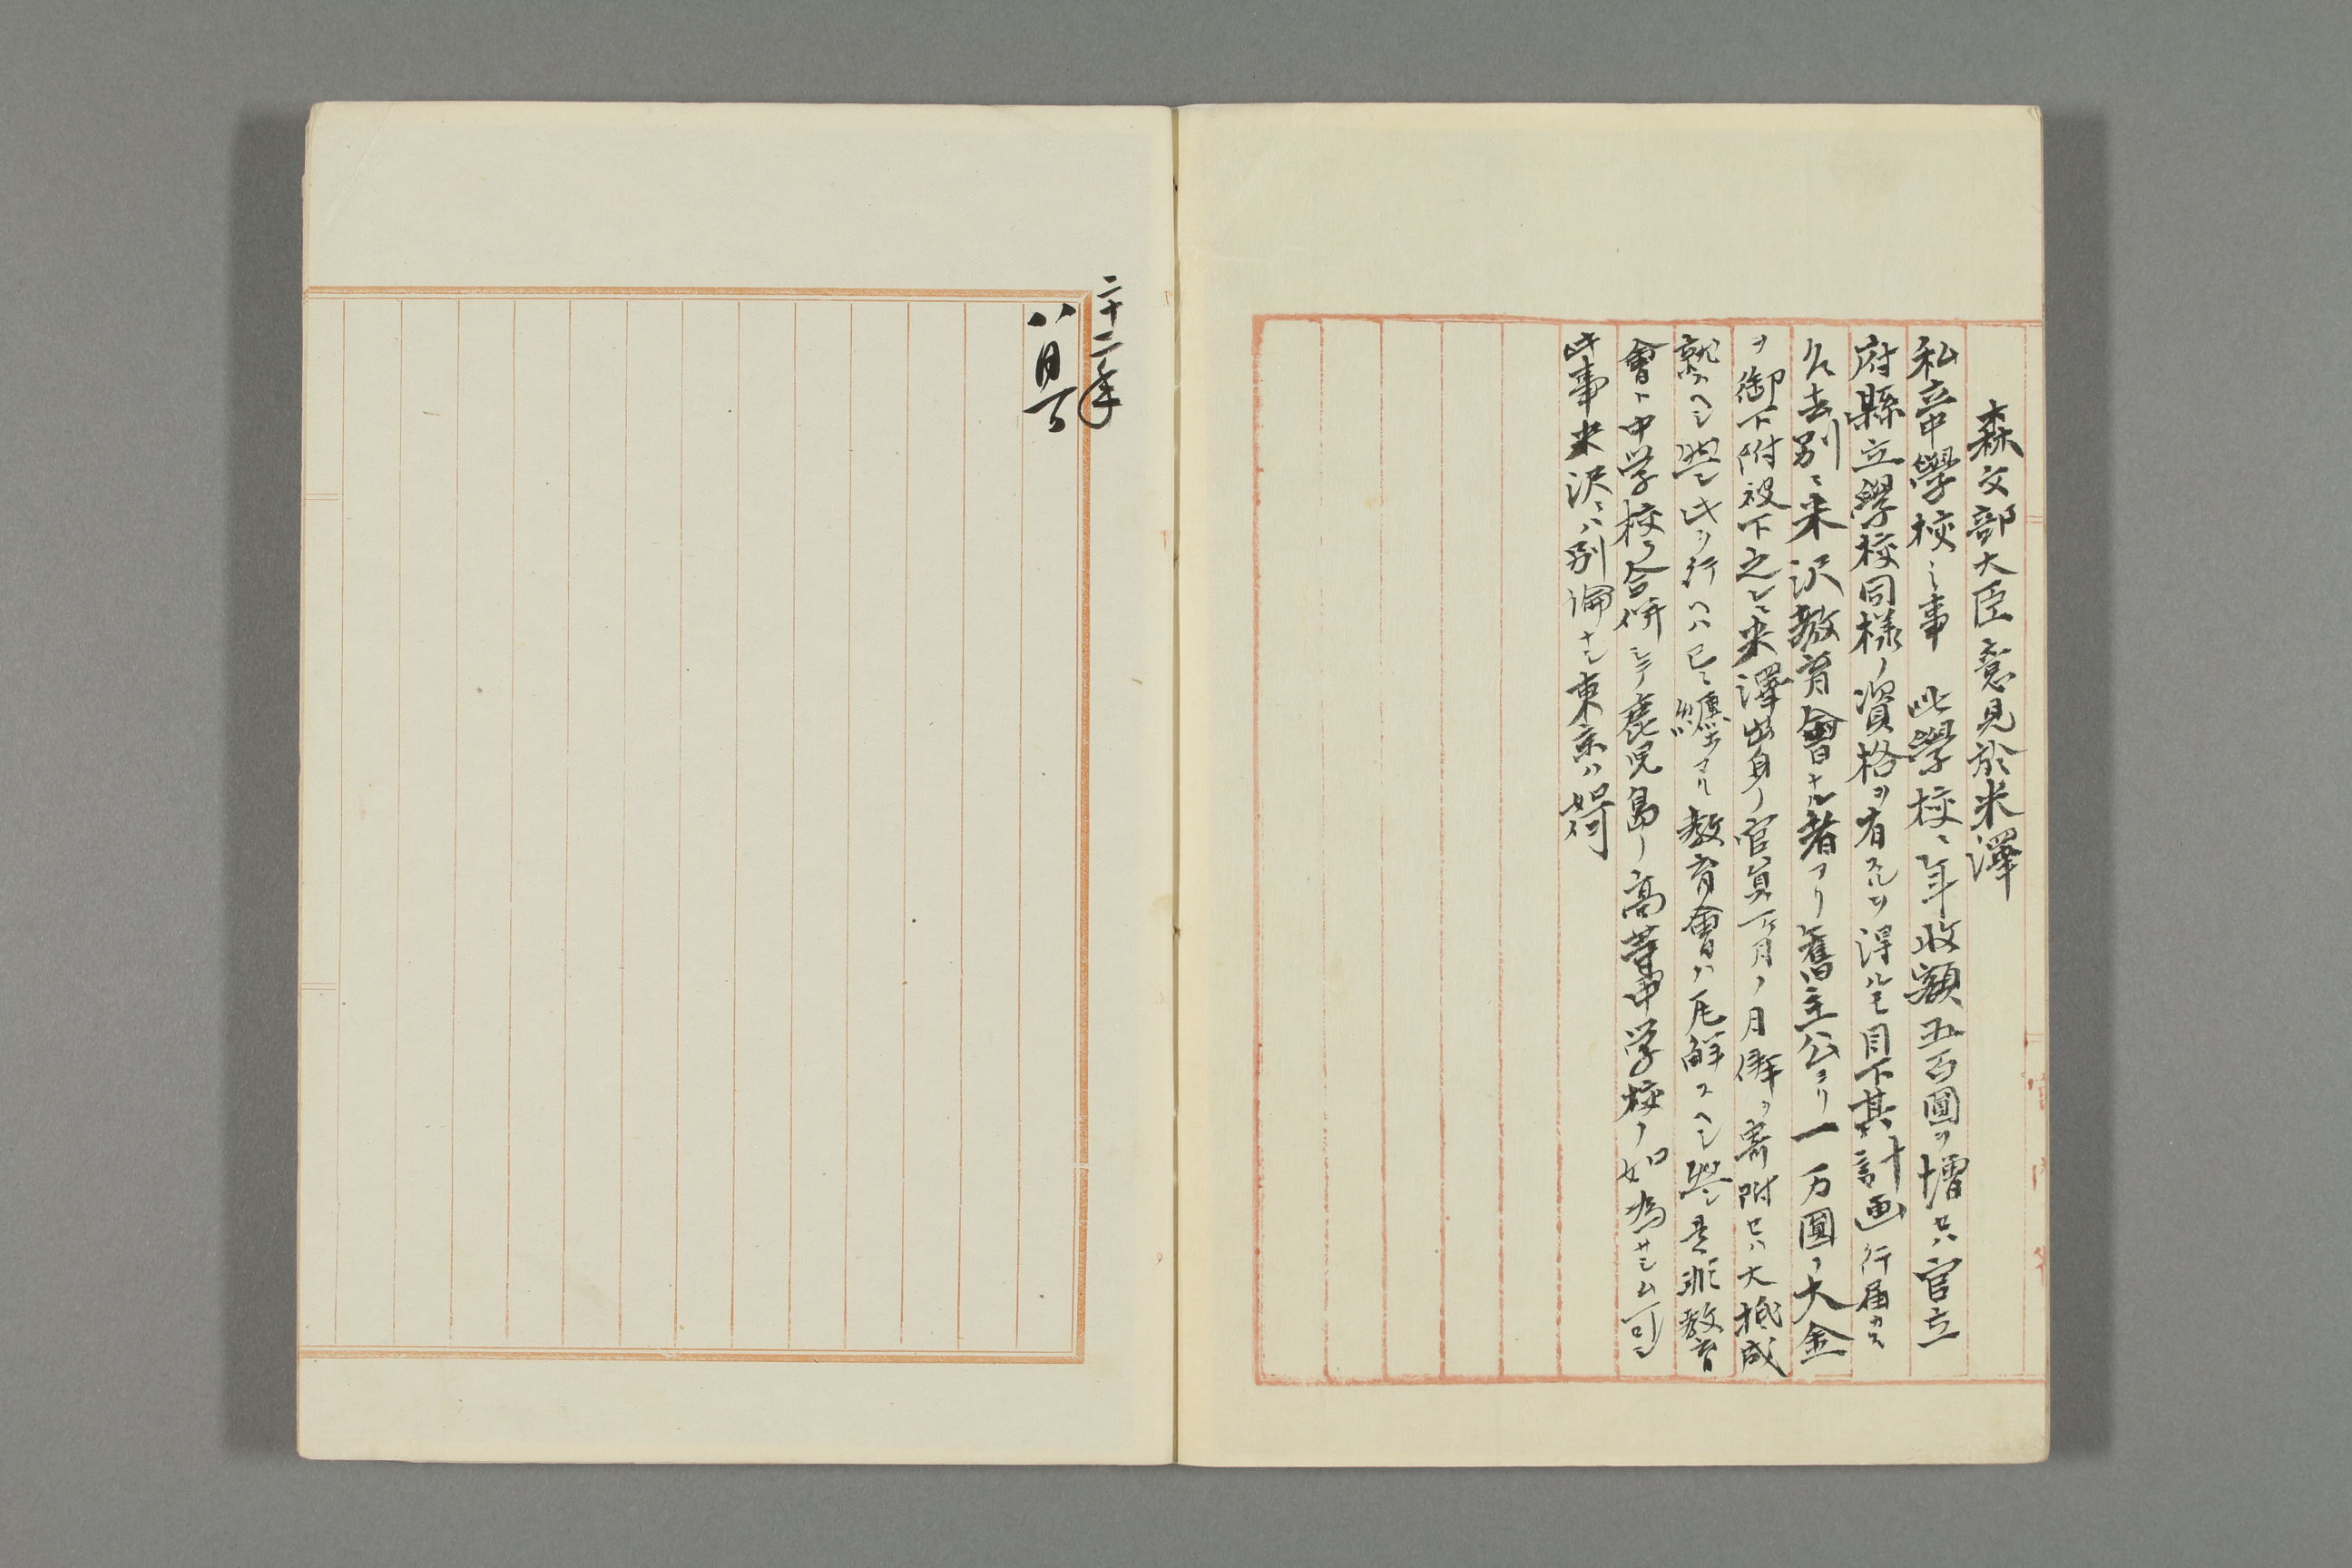 森文部大臣意見於米澤
私立中學校之事　此學校ニ年収額五百圓ヲ増セハ官立
府縣立學校同様ノ資格ヲ有スルヲ得ルモ目下其計画行届カス
久去別ニ米沢教育會ナル者アリ舊主公ヨリ一万圓ノ大金
ヲ御下附被下之レニ米澤出身ノ官員一ケ月ノ月俸ヲ寄附セハ大抵成
就スヘシ然レ𪜈此ヲ行ヘハ已ニ纏マリ教育會ハ瓦解スヘシ然レ𪜈是非教育
會ト中学校ヲ合併シテ鹿児島ノ高等中学校ノ如為サシム可シ
此事米沢ニハ別論ナシ東京ハ如何
二十二年
八月